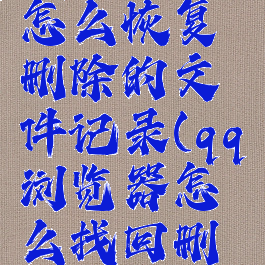 怎么恢复
删除的文
件记录(qq
浏览器怎
么找回删